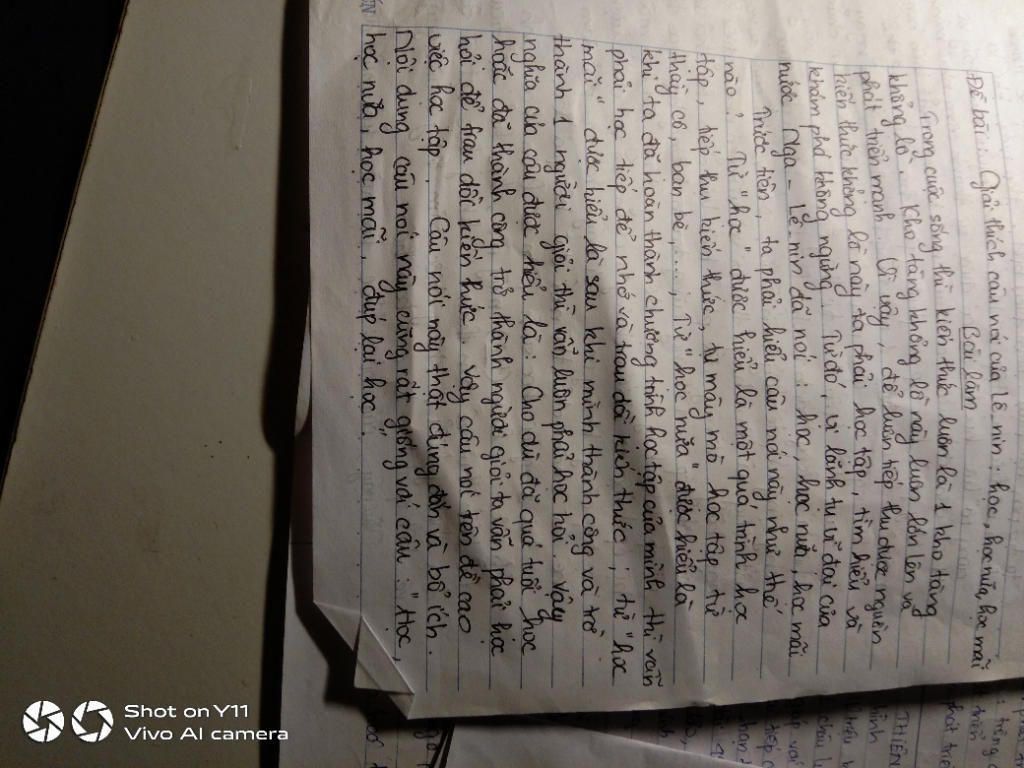 Đề bài : Giải thích câu nói của Lê nin : học, học nữa, học mãi
Bài làm
Trong cuộc sống thì kiến thức luôn là 1 kho tàng
khổng lồ. Kho tàng khổng lồ này luôn lớn lên và
phát triển mạnh. Vì vậy, để luôn tiếp thu được nguồn
kiến thức khổng lồ này ta phải học tập, tìm hiểu và
khám phá không ngừng. Từ đó, vị lãnh tụ vĩ đại của
nước Nga - Lê nin đã nói : học, học nữa, học mãi
Trước tiên, ta phải hiểu câu nói này như thế
nào. Từ "học" được hiểu là một quá trình học
tập, tiếp thu kiến thức, tự mày mò học tập từ
thầy cô, bạn bè, ...., Từ "học nữa" được hiểu là
khi ta đã hoàn thành chương trình học tập của mình thì vẫn
phải học tiếp để nhớ và trau dồi kiến thức ; từ "học
mãi" được hiểu là sau khi mình thành công và trở
thành 1 người giỏi thì vẫn luôn phải học hỏi. Vậy
nghĩa của câu được hiểu là : Cho dù đã quá tuổi học
hoặc đã thành công trở thành người giỏi ta vẫn phải học
hỏi để trau dồi kiến thức. Vậy câu nói trên đề cao
việc học tập. Câu nói này thật đúng đắn và bổ ích.
Nội dung câu nói này cũng rất giống với câu : "Học,
học nữa, học mãi, đúp lại học".
Shot on Y11
Vivo AI camera